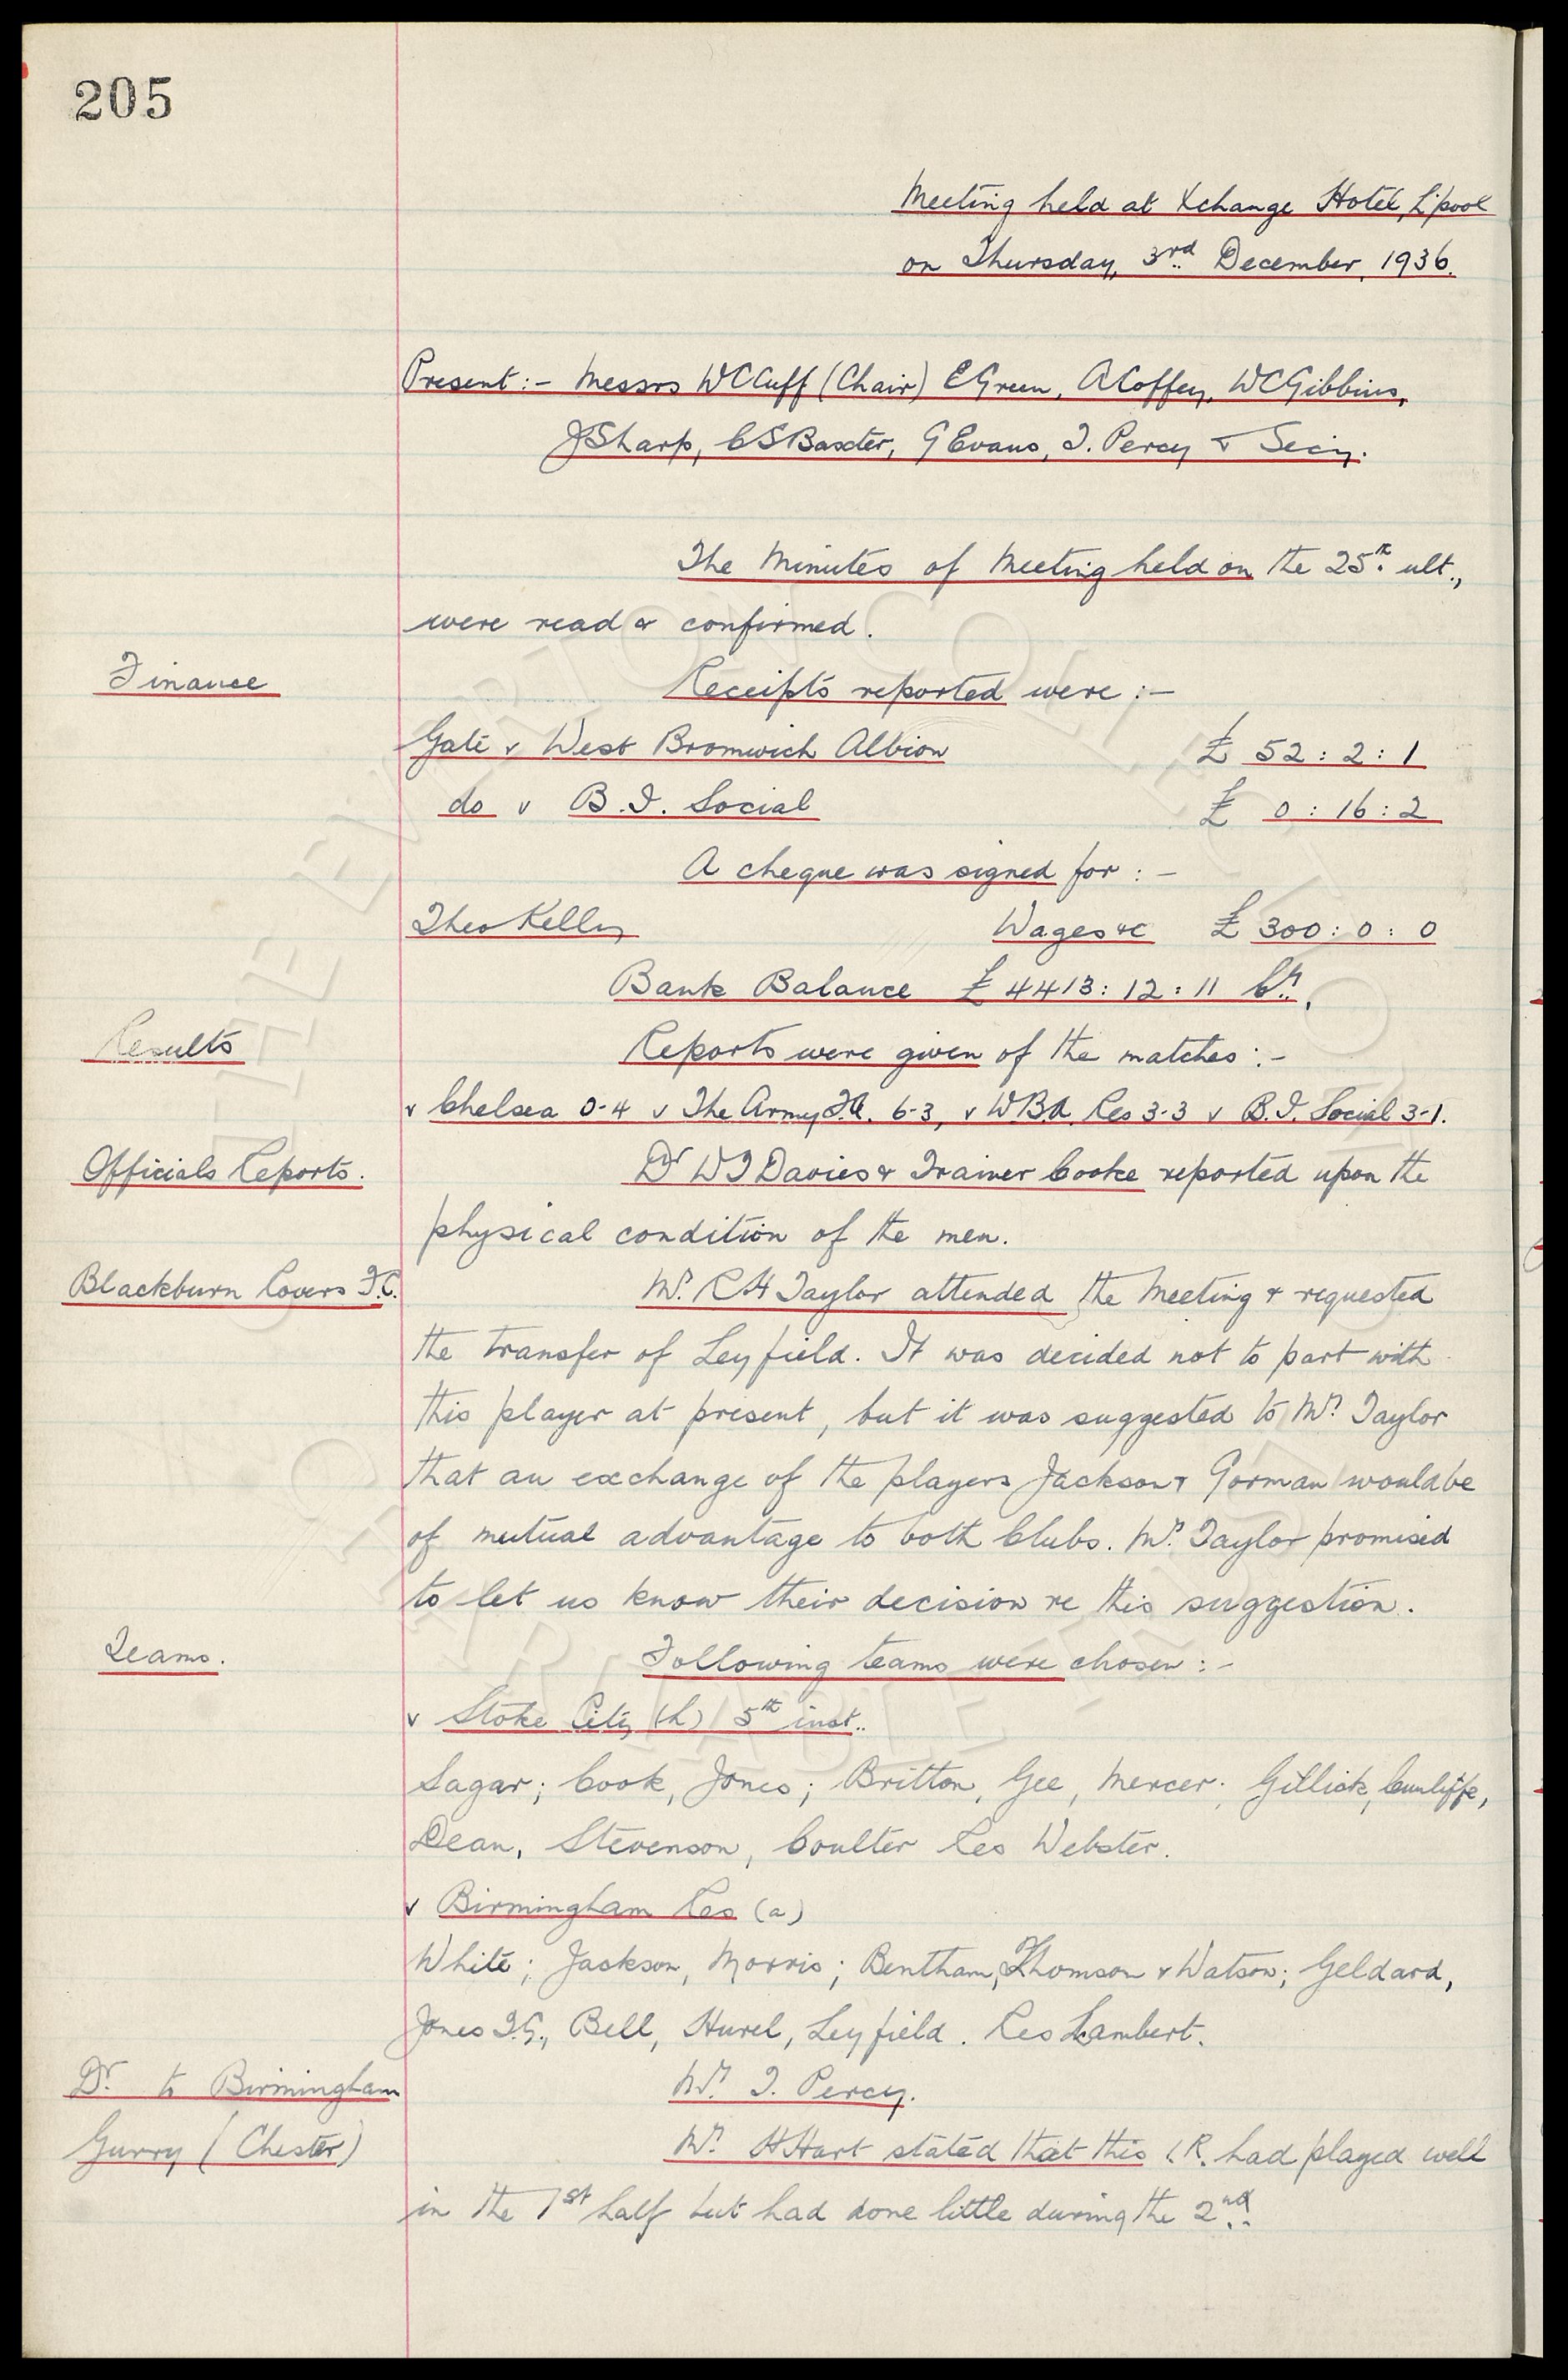 205
Meeting held at Xchange Hotel, L'pool
on Thursday, 3rd December, 1936.
Present:- Messrs W C Cuff (Chair) E Green, A Coffey, W C Gibbins,
J Sharp, C S Baxter, G Evans, T. Percy & Secy.
The Minutes of Meeting held on the 25th ult.,
were read & confirmed.
Finance
Receipts reported were :-
Gate v West Bromwich Albion £ 52 : 2 : 1
do v B.I. Social £ 0 : 16 : 2
A cheque was signed for :-
Theo Kelly Wages &c £ 300 : 0 : 0
Bank Balance £ 4413 : 12 : 11 Cr.
Results
Reports were given of the matches :-
v Chelsea 0-4 v The Army F.A. 6-3, v W.B.A. Res 3-3 v B.I. Social 3-1.
Officials Reports.
Dr W J Davies & Trainer Cooke reported upon the
physical condition of the men.
Blackburn Rovers F.C.
Mr. R H Taylor attended the Meeting & requested
the transfer of Leyfield. It was decided not to part with
this player at present, but it was suggested to Mr. Taylor
that an exchange of the players Jackson & Gorman would be
of mutual advantage to both Clubs. Mr. Taylor promised
to let us know their decision re this suggestion.
Teams.
Following teams were chosen :-
v Stoke City (h) 5th inst..
Sagar; Cook, Jones; Britton, Gee, Mercer; Gillick, Cunliffe,
Dean, Stevenson, Coulter Res Webster.
v Birmingham Res (a)
White; Jackson, Morris; Bentham, Thomson & Watson; Geldard,
Jones T.G., Bell, Hurel, Leyfield. Res Lambert.
Dr. to Birmingham
Mr. T. Percy.
Gurry (Chester)
Mr. H Hart stated that this I.R. had played well
in the 1st half but had done little during the 2nd.